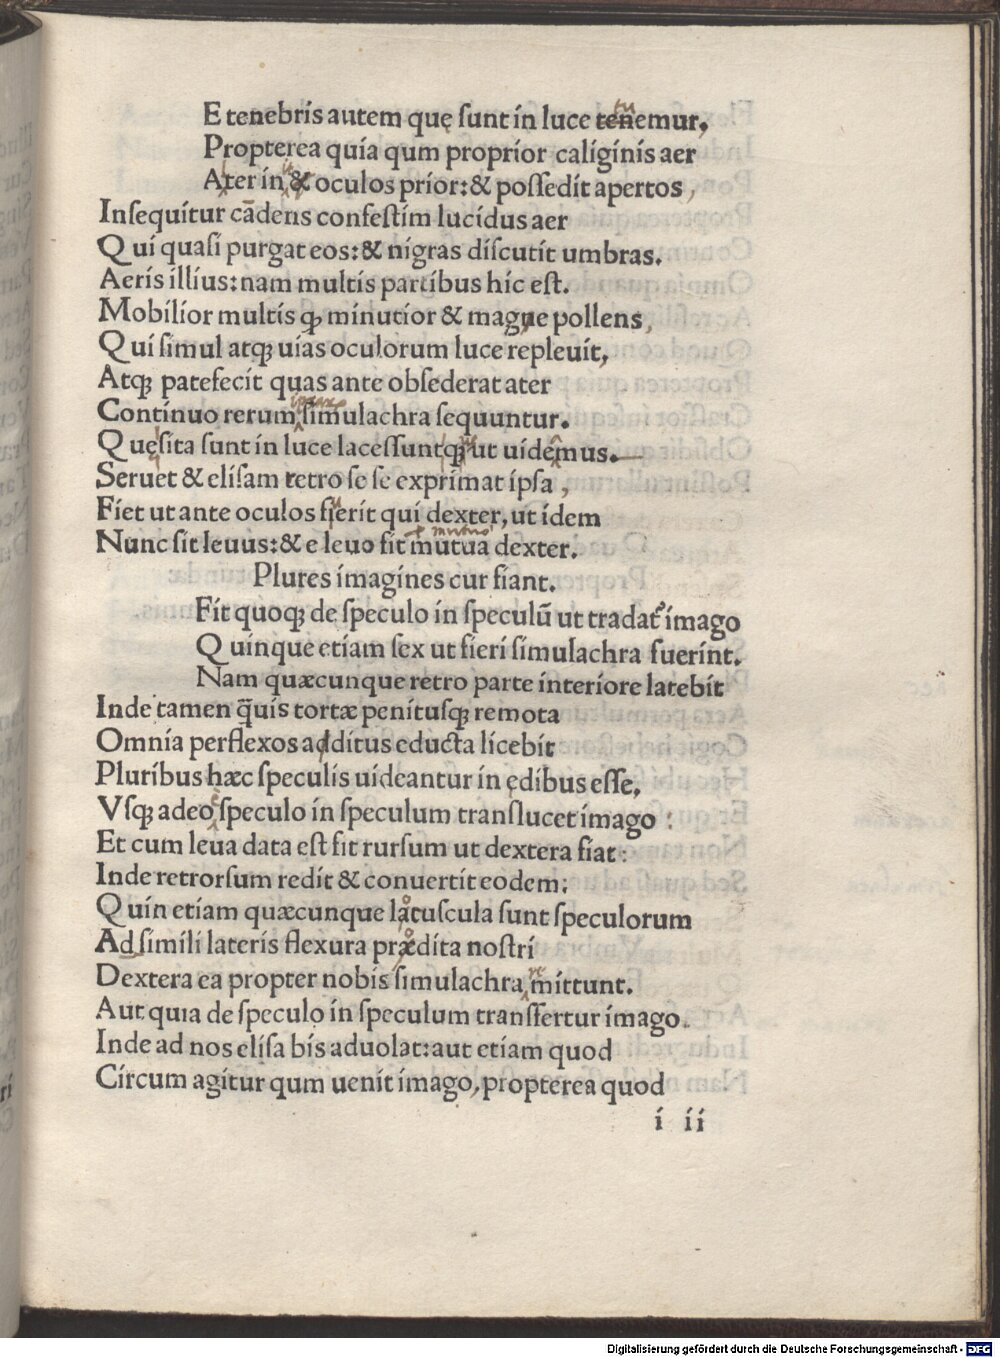 E tenebris autem quę ſunt in luce tenemur.
Propterea quia qum proprior caliginis aer
Ater in & oculos prior:& poſſedit apertos,
Inſequitur cādens confeſtim lucidus aer
Qui quaſi purgat eos:& nigras diſcutit umbras.
Aeris illius:nam multis partibus hic eſt.
Mobilior multis ꝙ minutior & magne pollens,
Qui ſimul atqꝫ uias oculorum luce repleuit,
Atqꝫ patefecit quas ante obſederat ater
Continuo rerum ſimulachra ſequuntur.
Quęſita ſunt in luce laceſſuntqꝫ ut uidemus.
Seruet & eliſam retro ſe ſe exprimat ipſa,
Fiet ut ante oculos fierit qui dexter, ut idem
Nunc ſit leuus:& e leuo ſit mutua dexter.
Plures imagines cur fiant.
Fit quoqꝫ de ſpeculo in ſpeculū ut tradat᷑ imago
Quinque etiam ſex ut fieri ſimulachra fuerint.
Nam quæcunque retro parte interiore latebit
Inde tamen q̄uis tortæ penituſqꝫ remota
Omnia perflexos additus educta licebit
Pluribus hæc ſpeculis uideantur in ędibus eſſe,
Vſqꝫ adeo ſpeculo in ſpeculum tranſlucet imago :
Et cum leua data eſt fit rurſum ut dextera fiat:
Inde retrorſum redit & conuertit eodem;
Quin etiam quæcunque latuſcula ſunt ſpeculorum
Ad ſimili lateris flexura prædita noſtri
Dextera ea propter nobis ſimulachra mittunt.
Aut quia de ſpeculo in ſpeculum tranſfertur imago.
Inde ad nos eliſa bis aduolat:aut etiam quod
Circum agitur qum uenit imago, propterea quod
i ii
Digitalisierung gefördert durch die Deutsche Forschungsgemeinschaft - DFG